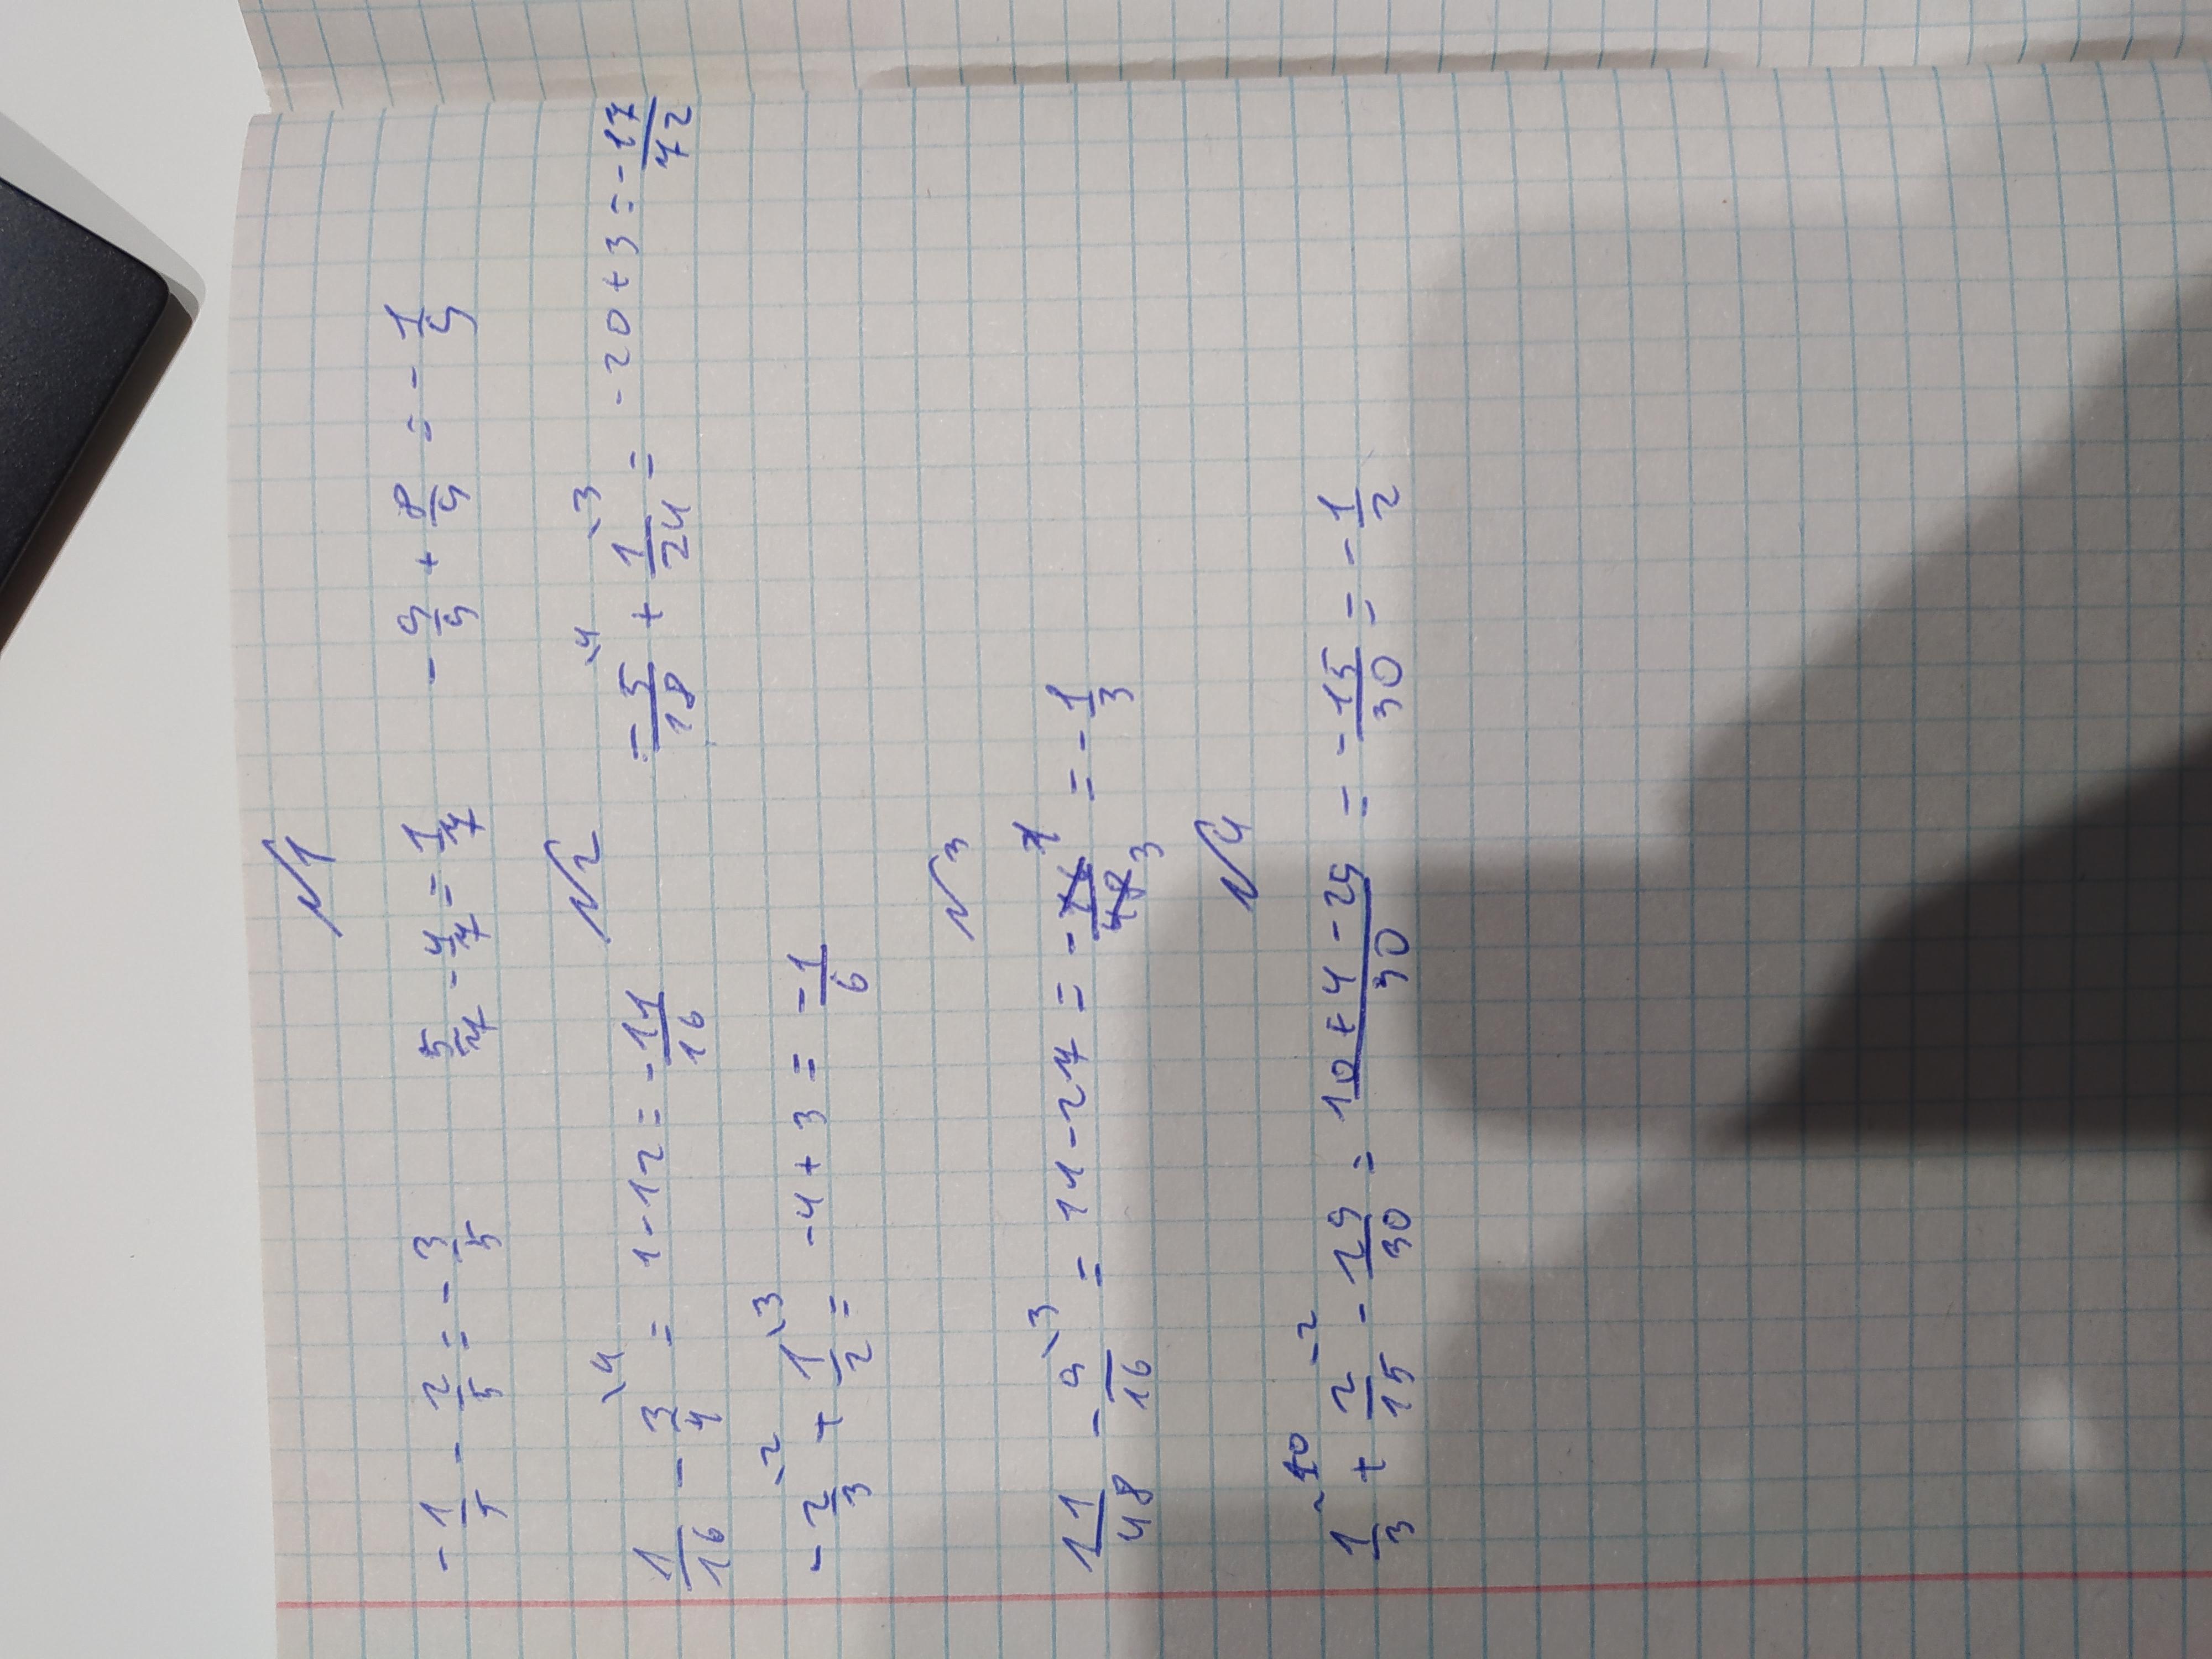 №1
-1/5 - 2/5 = -3/5 5/7 - 4/7 = 1/7 -9/9 + 8/9 = -1/9
№2
1/16 - 3/4 \4 = 1-12 = -11/16 = -5/18 \4 + 1/24 \3 = -20+3 = -17/72
-2/3 \2 + 1/2 \3 = -4+3 = -1/6
№3
11/48 - 9/16 \3 = 11-27 = -16/48 1 3 = -1/3
№4
1/3 \10 + 2/15 \2 - 29/30 = 10+4-29/30 = -15/30 = -1/2